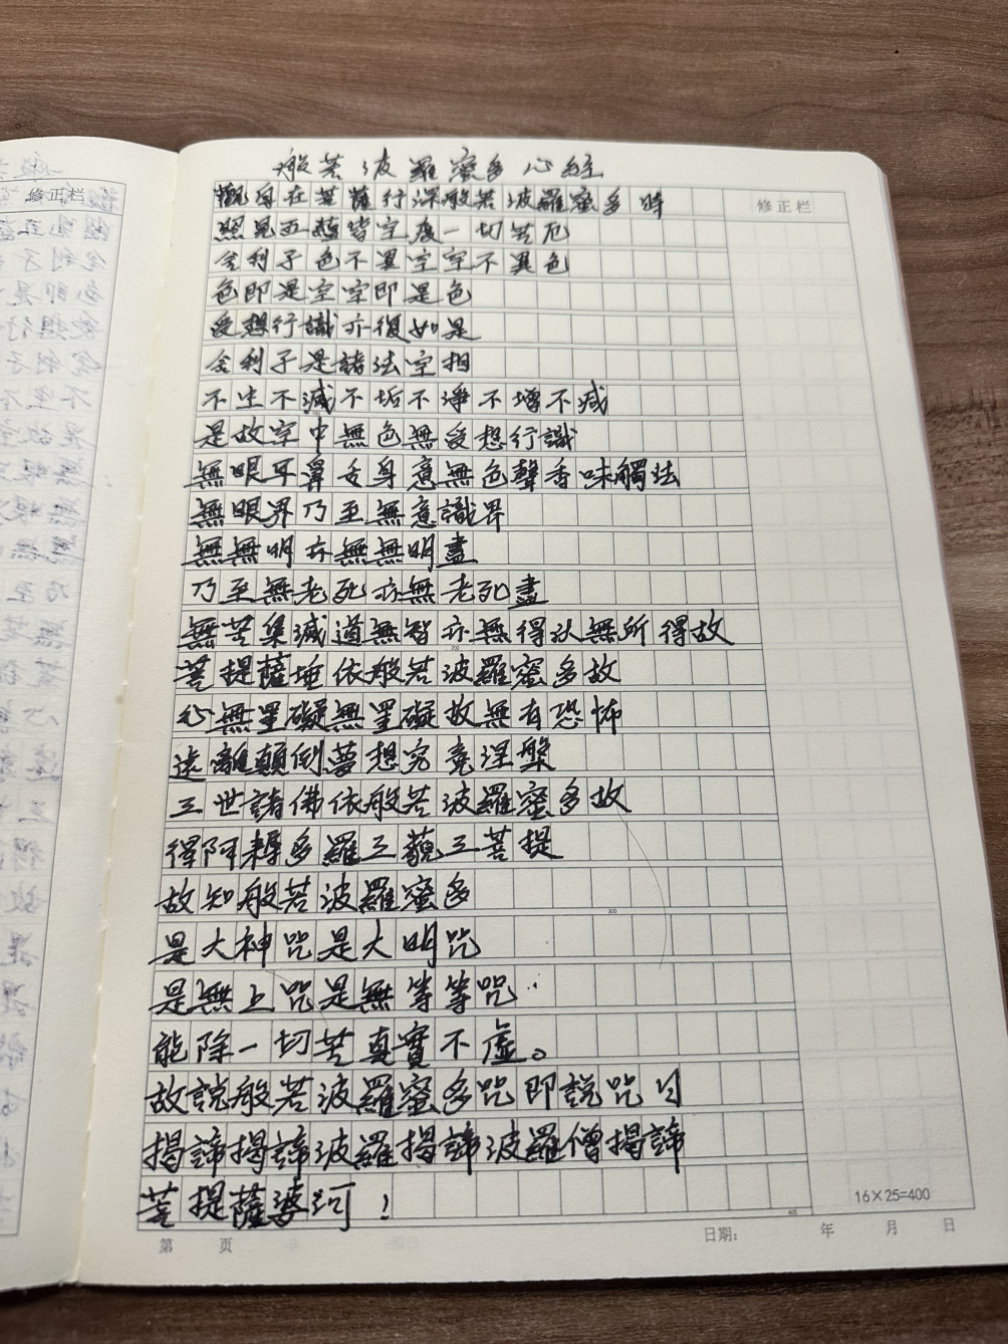 般若波羅蜜多心經
觀自在菩薩行深般若波羅蜜多時
修正栏
修正栏
照見五蘊皆空度一切苦厄
舍利子色不異空空不異色
色即是空空即是色
受想行識亦復如是
舍利子是諸法空相
不生不滅不垢不淨不增不减
是故空中無色無受想行識
無眼耳鼻舌身意無色聲香味觸法
無眼界乃至無意識界
無無明亦無無明盡
乃至無老死亦無老死盡
無苦集滅道無智亦無得以無所得故
菩提薩埵依般若波羅蜜多故
心無罣礙無罣礙故無有恐怖
遠離顛倒夢想究竟涅槃
三世諸佛依般若波羅蜜多故
得阿耨多羅三藐三菩提
故知般若波羅蜜多
是大神咒是大明咒
是無上咒是無等等咒
能除一切苦真實不虛。
故說般若波羅蜜多咒即說咒曰
揭諦揭諦波羅揭諦波羅僧揭諦
菩提薩婆訶！
16×25=400
第 页 日期： 年 月 日